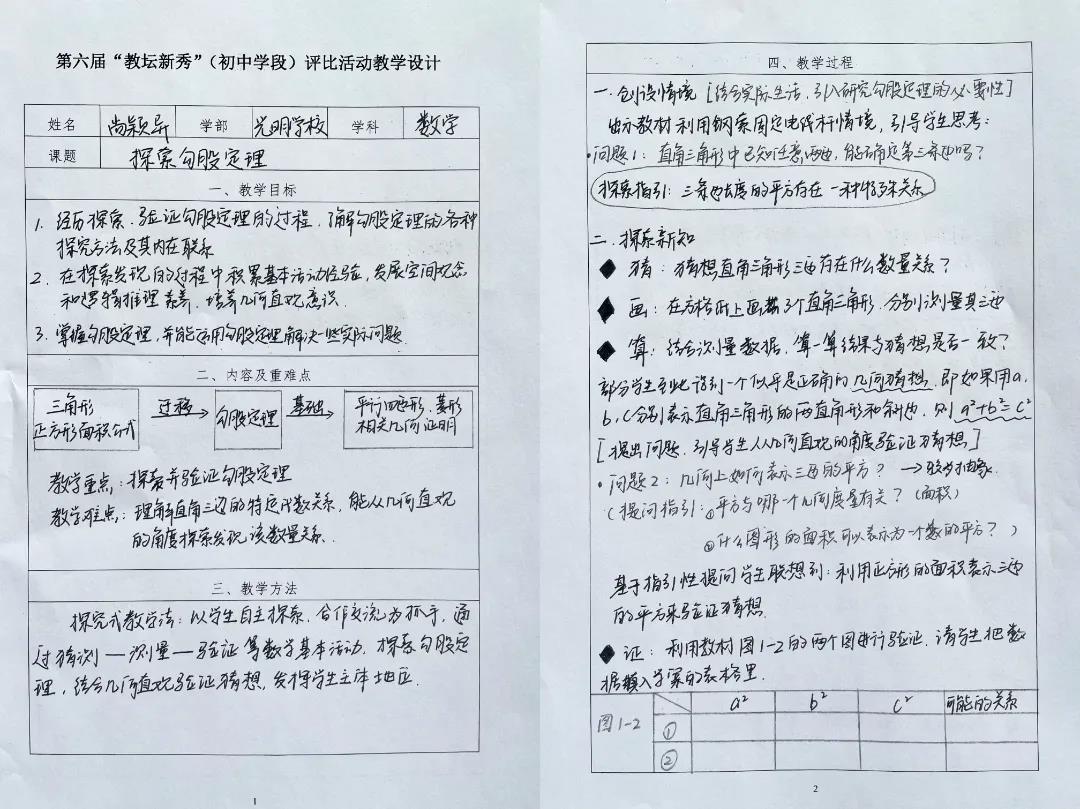 第六届“教坛新秀”（初中学段）评比活动教学设计
姓名 尚颖异 学部 光明学校 学科 数学
课题 探索勾股定理
一、教学目标
1. 经历探索、验证勾股定理的过程，了解勾股定理的各种
探究方法及其内在联系
2. 在探索发现的过程中积累基本活动经验，发展空间观念
和逻辑推理素养，培养几何直观意识.
3. 掌握勾股定理，并能运用勾股定理解决一些实际问题
二、内容及重难点
三角形 正方形面积公式 迁移 勾股定理 基础 平行四边形、菱形 相关几何证明
教学重点：探索并验证勾股定理
教学难点：理解直角三边的特定代数关系，能从几何直观
的角度探索发现该数量关系.
三、教学方法
探究式教学法：以学生自主探索，合作交流为抓手，通
过猜测—测量—验证等数学基本活动，探索勾股定
理，结合几何直观验证猜想，发挥学生主体地位.
1
四、教学过程
一. 创设情境 [结合实际生活，引入研究勾股定理的必要性]
由办教材利用钢索固定电线杆情境，引导学生思考：
·问题1：直角三角形中已知任意两边，能确定第三条边吗？
探索指引：三条边长度的平方存在一种特殊关系
二. 探索新知
◆ 猜：猜想直角三角形三边存在什么数量关系？
◆ 画：在方格纸上画若3个直角三角形，分别测量其三边
◆ 算：结合测量数据，算一算结果与猜想是否一致？
部分学生至此识别一个似乎是正确的几何猜想，即如果用a，
b，c分别表示直角三角形的两直角形和斜边，则a²+b²=c²
[提出问题，引导学生从几何直观的角度验证猜想]
·问题2：几何上如何表示三边的平方？→较为抽象
（提问指引：①平方与哪一个几何度量有关？（面积）
②什么图形的面积可以表示为一个数的平方？）
基于指引性提问学生联想到：利用正方形的面积表示三边
的平方来验证猜想.
◆ 证：利用教材图1-2的两个图进行验证，请学生把数
据填入学案的表格里.
图1-2 a² b² c² 可能的关系
①
②
2